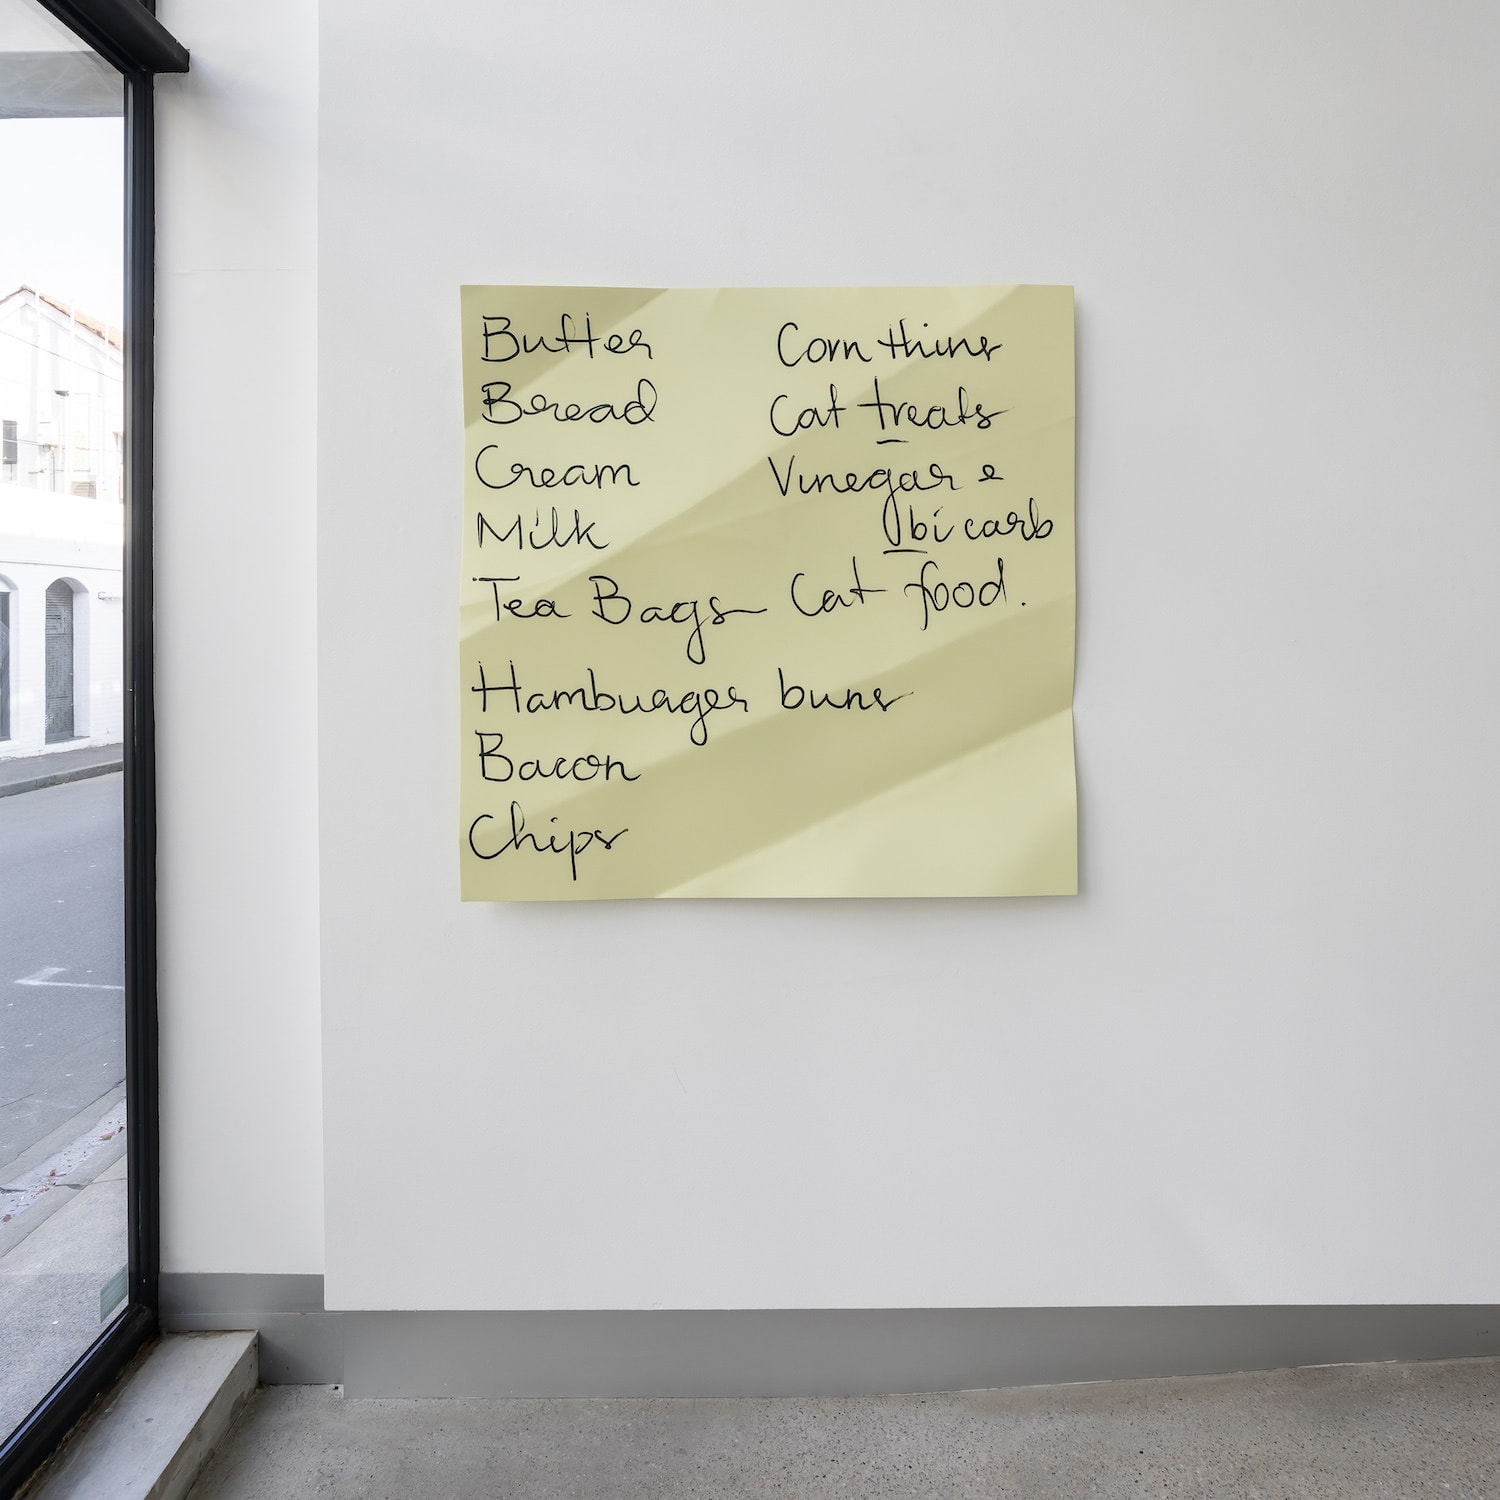 Butter
Bread
Cream
Milk
Tea Bags
Hamburger buns
Bacon
Chips
Corn thins
Cat treats
Vinegar e
bicarb
Cat food.